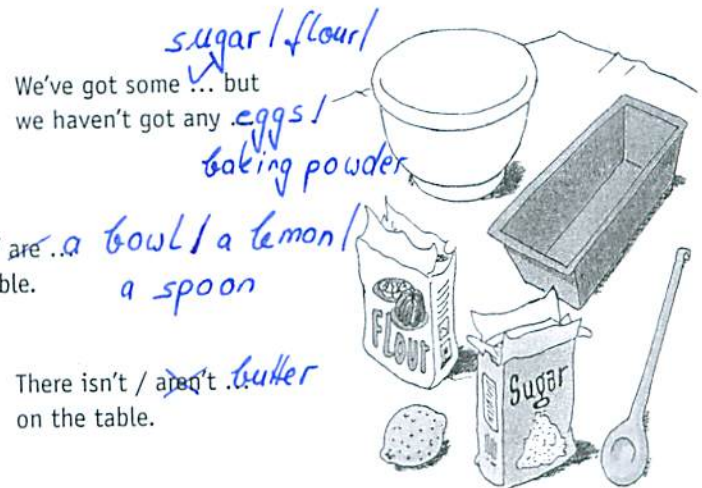 sugar / flour /
We've got some ... but
we haven't got any .eggs /
baking powder
are ... a bowl / a lemon /
ble.
a spoon
There isn't / aren't ... butter
on the table.
Flour
Sugar